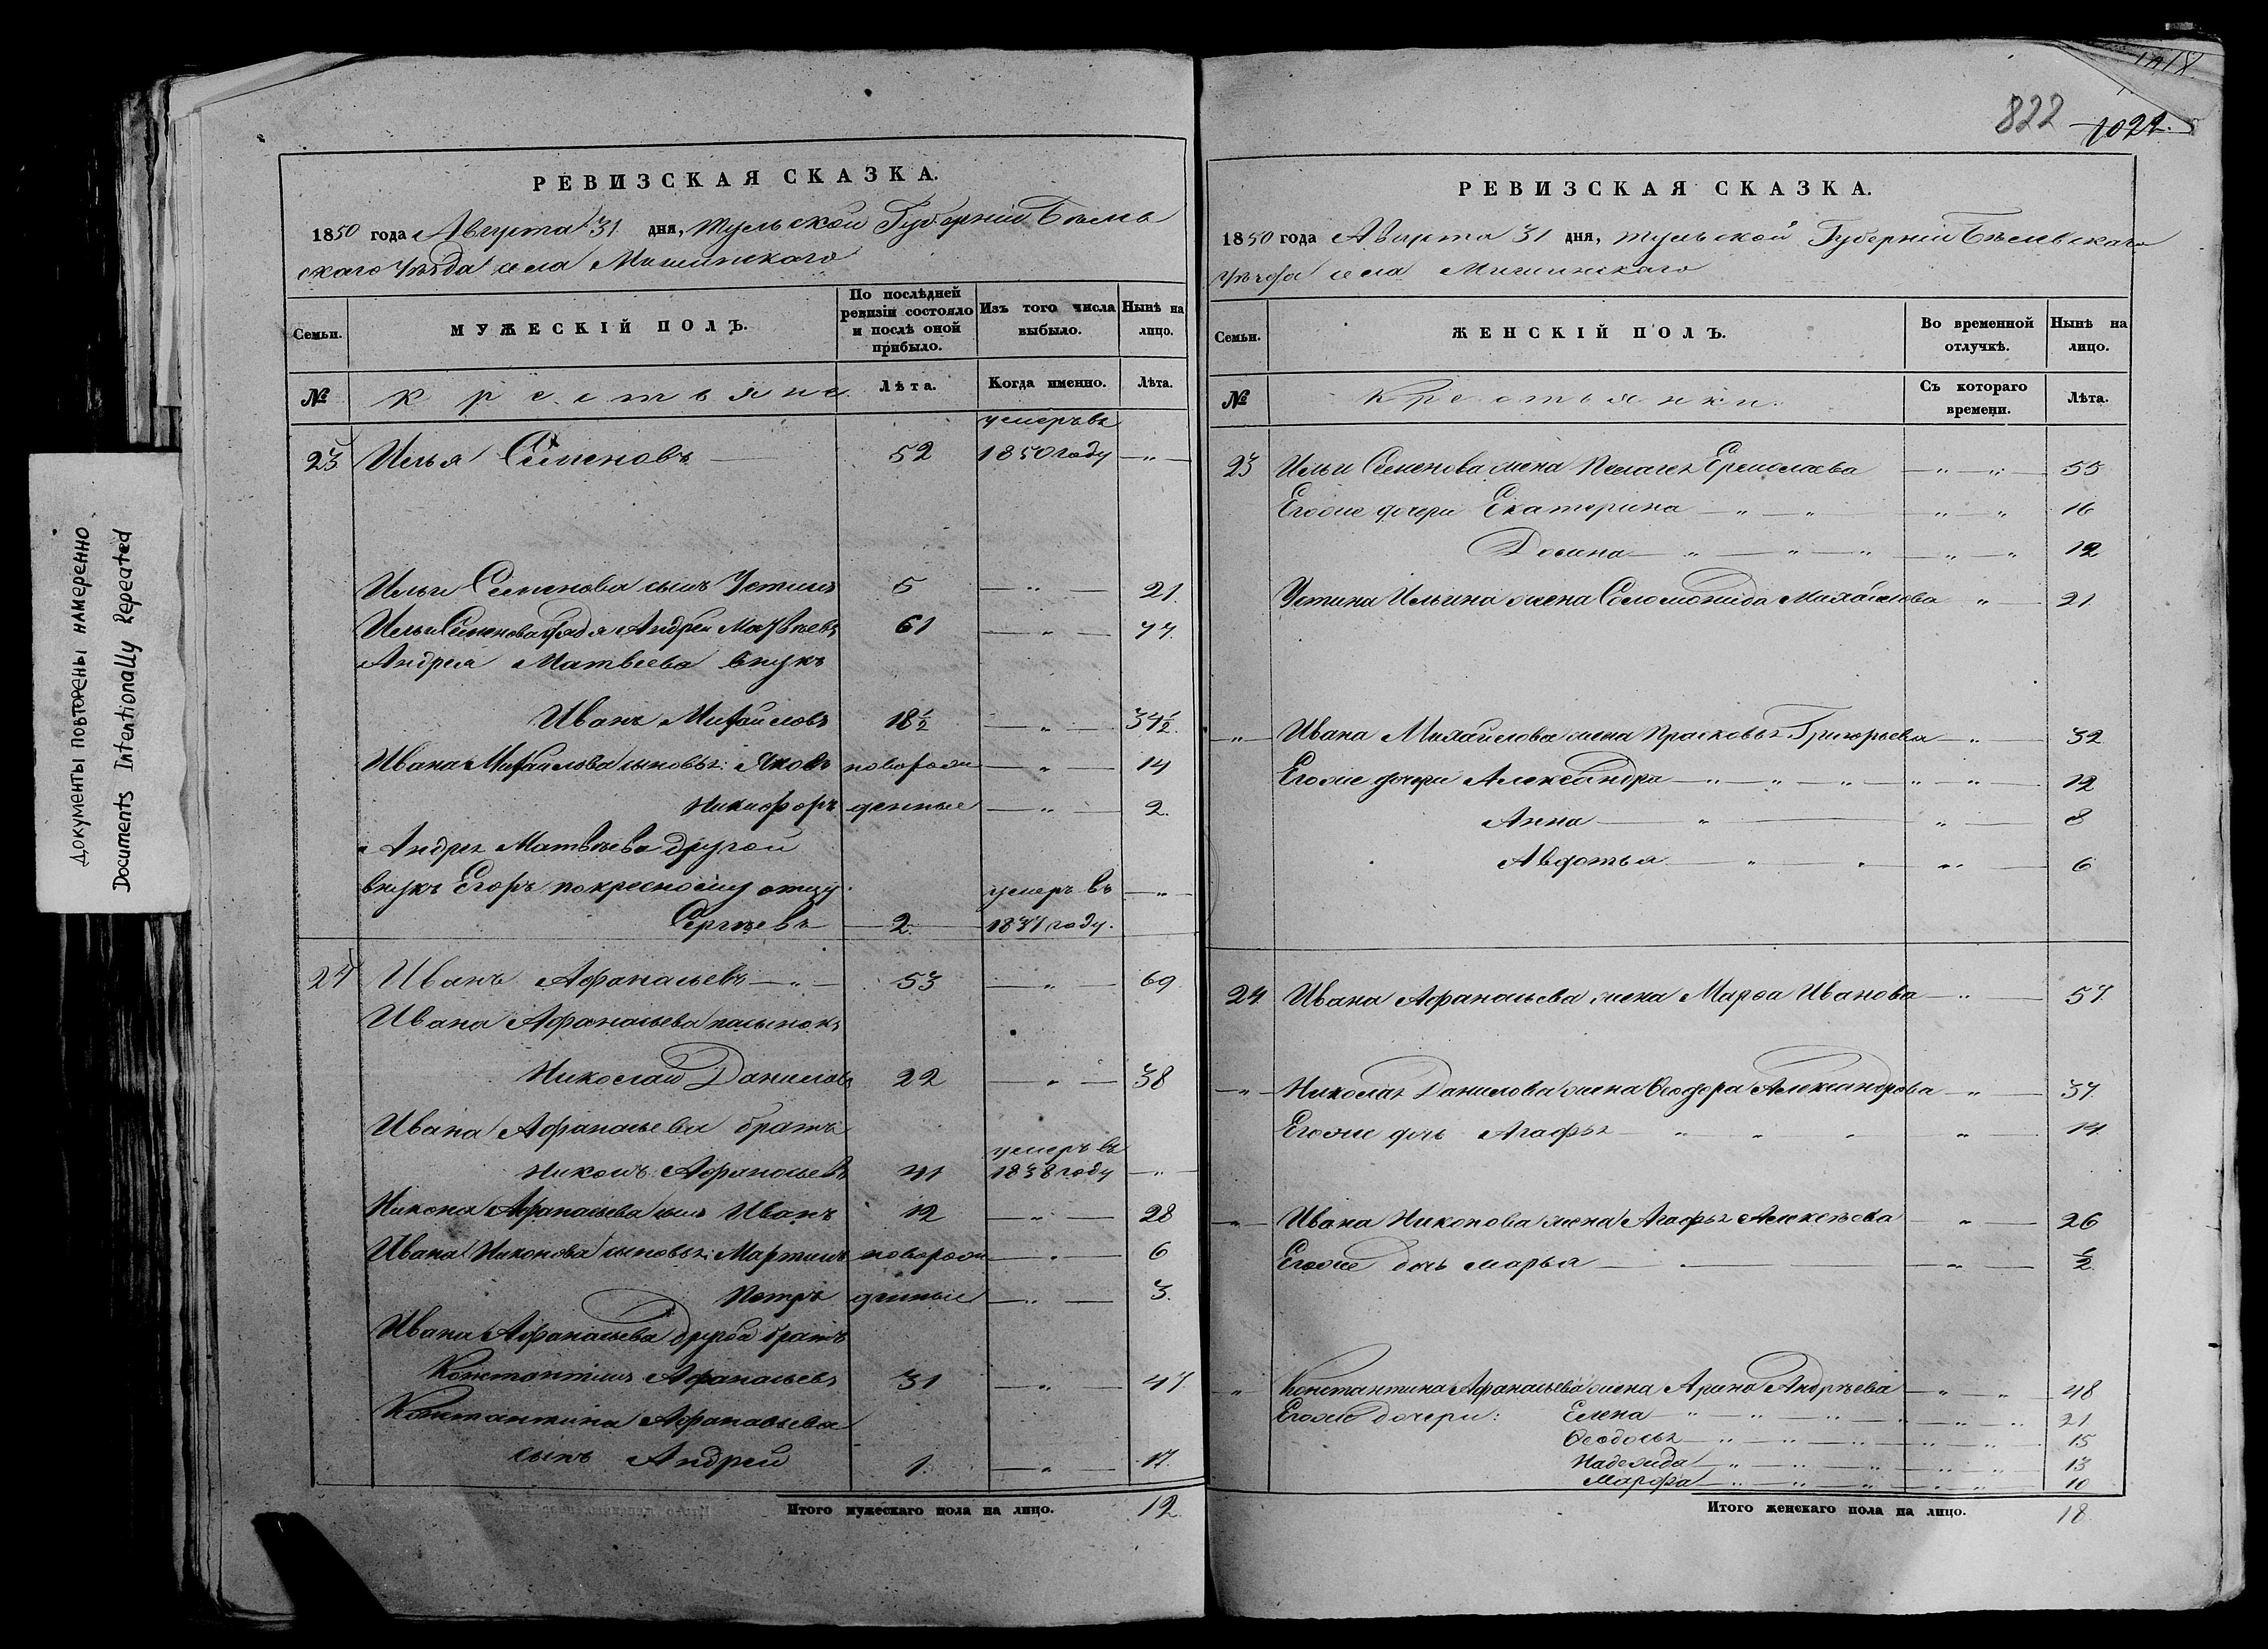 Документы повторены намеренно
Documents Intentionally Repeated
РЕВИЗСКАЯ СКАЗКА.
1850 года Августа 31 дня, Тульской Губерніи Бѣлев
скаго Уѣзда села Мишинскаго
Семьи.
МУЖЕСКІЙ ПОЛЪ.
По послѣдней ревизіи состояло и послѣ оной прибыло.
Изъ того числа выбыло.
Нынѣ на лицо.
№
Крестьяне
Лѣта.
Когда именно.
Лѣта.
23 Илья Семеновъ 52 умеръ въ 1850 году "
Ильи Семенова сынъ Устинъ 5 " 21
Ильи Семенова дядя Андрей Матвѣевъ 61 " 77
Андрея Матвеева внукъ
Иванъ Михайловъ 18½ " 34½
Ивана Михайлова сыновья: Яковъ новорож " 14
Никифоръ денные " 2.
Андрея Матвѣева другой
внукъ Егоръ по кресному отцу
Сергѣевъ 2 умеръ въ 1837 году. "
24 Иванъ Афанасьевъ " 53 " 69
Ивана Афанасьева пасынокъ
Николай Даниловъ 22 " 38
Ивана Афанасьева братъ
Никонъ Афанасьевъ 41 умеръ въ 1838 году "
Никона Афанасьева сынъ Иванъ 12 " 28
Ивана Никонова сыновья: Мартинъ новорож " 6
Петръ денные " 3.
Ивана Афанасьева другой братъ
Константинъ Афанасьевъ 31 " 47
Константина Афанасьева
сынъ Андрей 1 " 17.
Итого мужескаго пола на лицо. 12.
822 1021.
РЕВИЗСКАЯ СКАЗКА.
1850 года Августа 31 дня, Тульской Губерніи Бѣлевскаго
Уѣзда села Мишинскаго
Семьи.
ЖЕНСКІЙ ПОЛЪ.
Во временной отлучкѣ.
Нынѣ на лицо.
№
Крестьянки.
Съ котораго времени.
Лѣта.
23 Ильи Семенова жена Пелагея Ермолаева " " 55
Егоже дочери Екатерина " " " " 16
Домна " " " " " 12
Устина Ильина жена Соломонида Михайлова " 21
" Ивана Михайлова жена Прасковья Григорьева " 32
Егоже дочери Александра " " " " " 12
Анна " " 8
Авдотья " " 6
24 Ивана Афанасьева жена Марѳа Иванова " 57.
" Николая Данилова жена Ѳеодора Александрова " 37.
Егоже дочь Агафья " " " " 14
" Ивана Никонова жена Агафья Алексѣева " 26
Егоже дочь Марья " " ½
" Константина Афанасьева жена Арина Андрѣева " " 48
Егоже дочери: Елена " " " " " " 21
Ѳеодосья " " " " " 15
Надежида " " " " " 13
Марфа " " " " " 10
Итого женскаго пола на лицо. 18